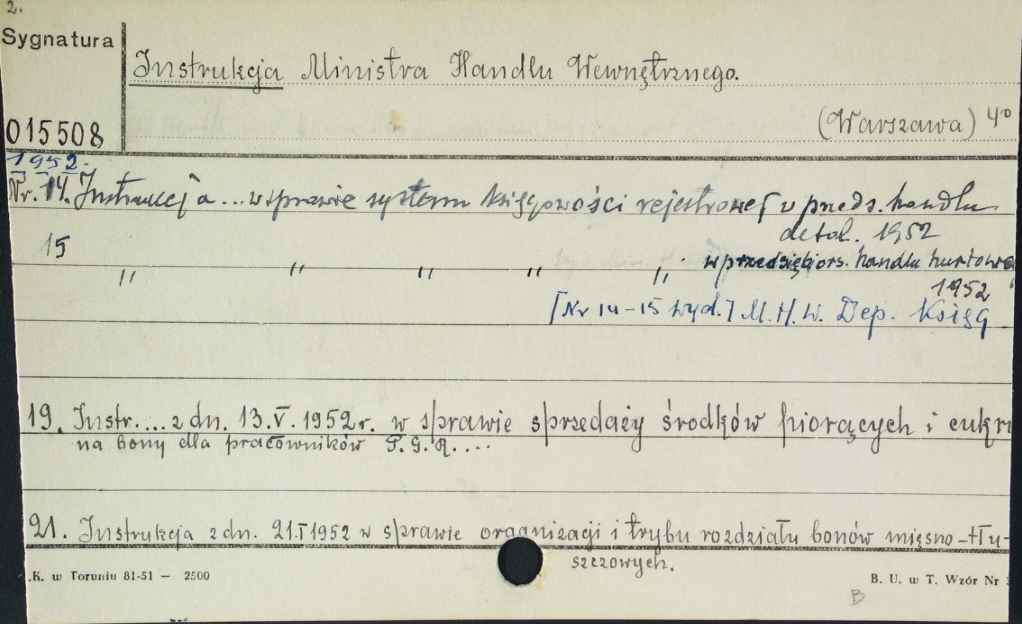 2.
Sygnatura
Instrukcja Ministra Handlu Wewnętrznego.
015508
(Warszawa) 4°
1952.
Nr. 14. Instrukcja... w sprawie systemu księgowości rejestrowej w przeds. handlu
detal. 1952
15 " " " " " w przedsiębiors. handlu hurtowe
1952
[Nr 14-15 wyd.] M.H.W. Dep. Księg
19. Instr.... z dn. 13.V.1952 r. w sprawie sprzedaży środków piorących i cukru
na bony dla pracowników P.G.R....
21. Instrukcja z dn. 21.I 1952 w sprawie organizacji i trybu rozdziału bonów mięsno-tłu-
szczowych.
.K. w Toruniu 81-51 — 2500
B. U. w T. Wzór Nr
B